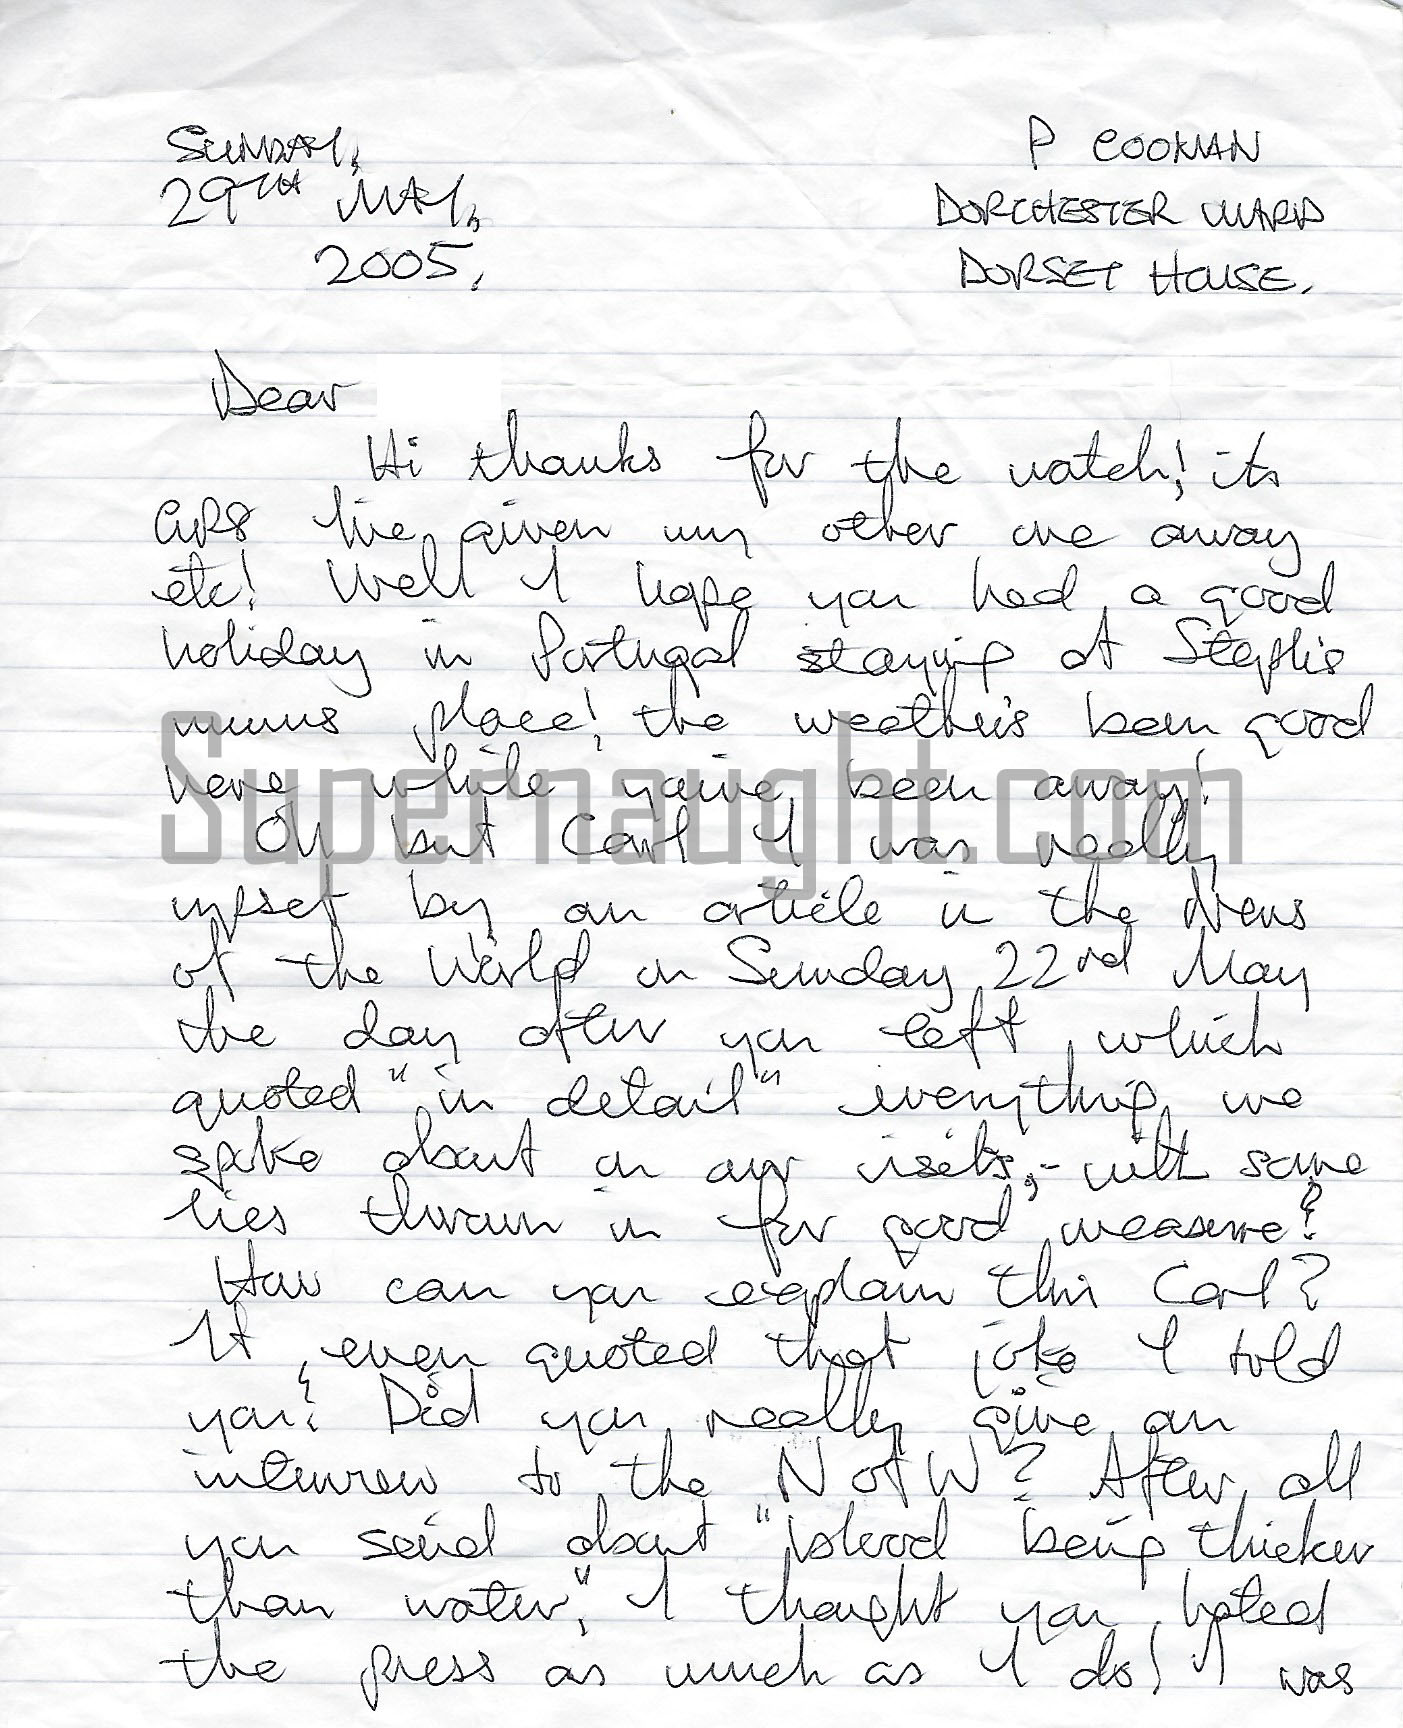 SUNDAY,
29TH MAY,
2005,
P COONAN
DORCHESTER WARD
DORSET HOUSE.
Dear
Hi thanks for the watch! its
I've given my other one away
etc! Well I hope you had a good
holiday in Portugal staying at Steph's
mums place! the weather's been good
here while you've been away!
Oh but Carl I was really
upset by an article in the News
of the World on Sunday 22nd May
the day after you left, which
quoted "in detail" everything we
spoke about on our visits, - with some
lies thrown in for good measure?
How can you explain this Carl?
It even quoted that joke I told
you! Did you really give an
interview to the NofW? After all
you said about "blood being thicker
than water," I thought you hated
the press as much as I do! I was
Supernaught.com